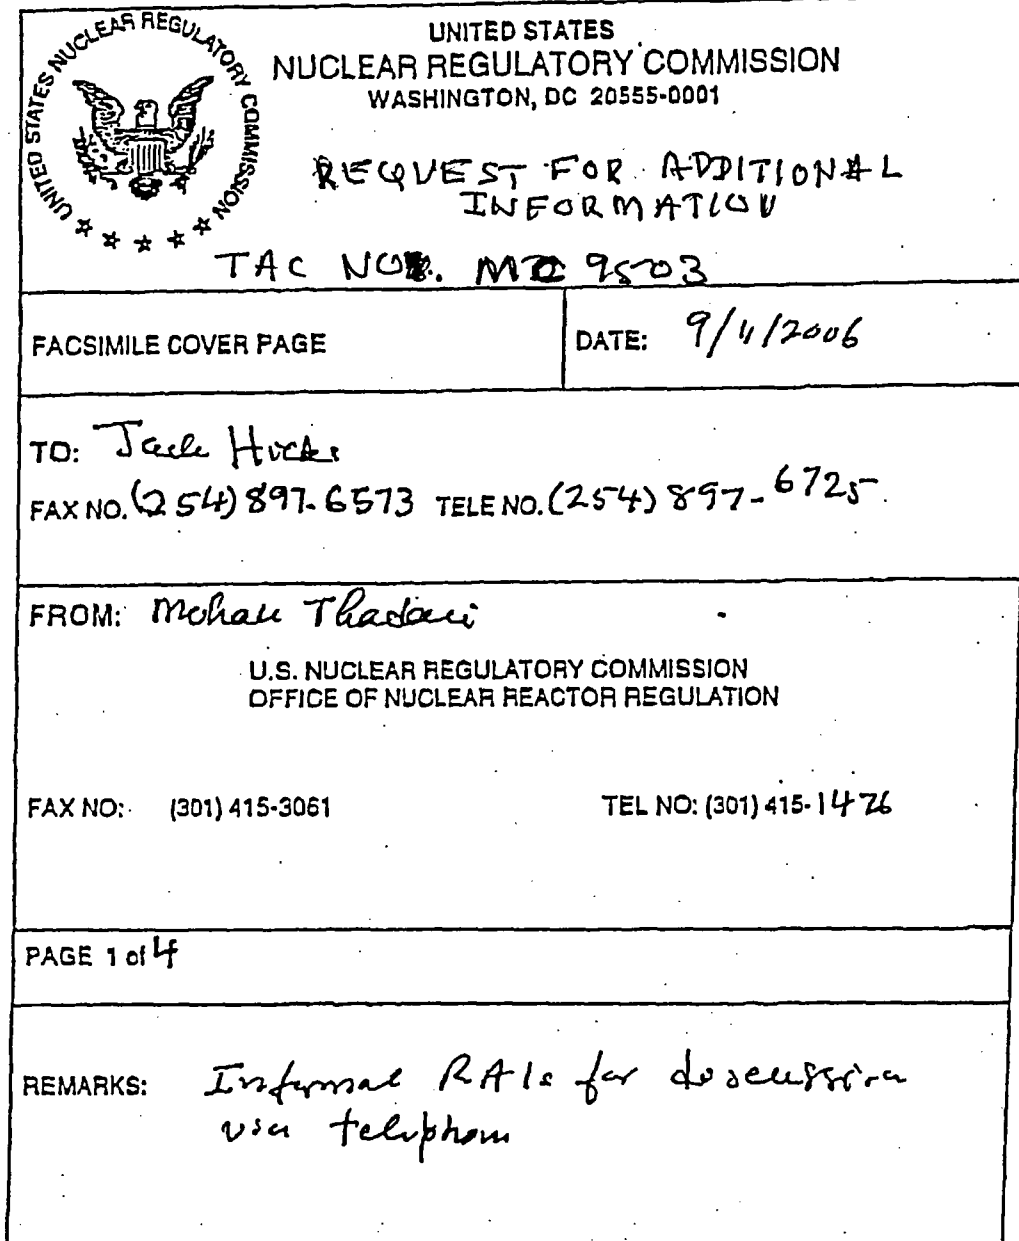 UNITED STATES NUCLEAR REGULATORY COMMISSION
UNITED STATES
NUCLEAR REGULATORY COMMISSION
WASHINGTON, DC 20555-0001
REQUEST FOR ADDITIONAL
INFORMATION
TAC NO. 9503
FACSIMILE COVER PAGE
DATE: 9/11/2006
TO: Jack Hicks
FAX NO. (254) 897-6573 TELE NO. (254) 897-6725
FROM: Mohan Thadani
U.S. NUCLEAR REGULATORY COMMISSION
OFFICE OF NUCLEAR REACTOR REGULATION
FAX NO: (301) 415-3061 TEL NO: (301) 415-1476
PAGE 1 of 4
REMARKS: Informal RAIs for discussion
via telephone